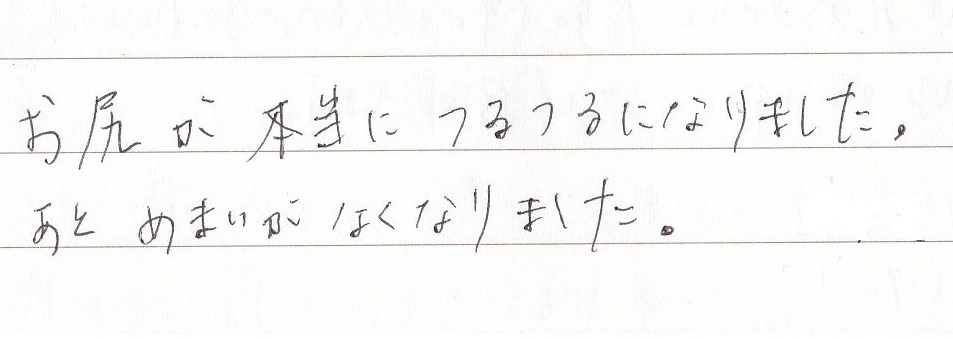 お尻が本当につるつるになりました。
あと めまいがなくなりました。